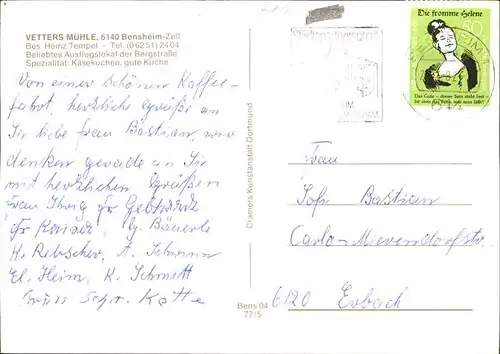 VETTERS MÜHLE, 6140 Bensheim-Zell
Bes. Heinz Tempel – Tel. (06251) 2404
Beliebtes Ausflugslokal der Bergstraße
Spezialität: Käsekuchen, gute Küche
Von einer schönen Kaffee-
fahrt, herzliche Grüße an
Sie liebe Frau Bastian, wir
denken gerade an Sie
mit herzlichen Grüßen
Frau
Fr Kaiser,
K. Rebscher, A.
El. Heim, K. Schmitt
Gruss Katte
Cramers Kunstanstalt Dortmund
Bens 04
77/5
Die fromme Helene
50
Das Gute – dieser Satz steht fest –
Ist stets das Böse, was man läßt!
Frau
Sof. Bastian
Carlo-Mierendorfstr.
6120 Erbach